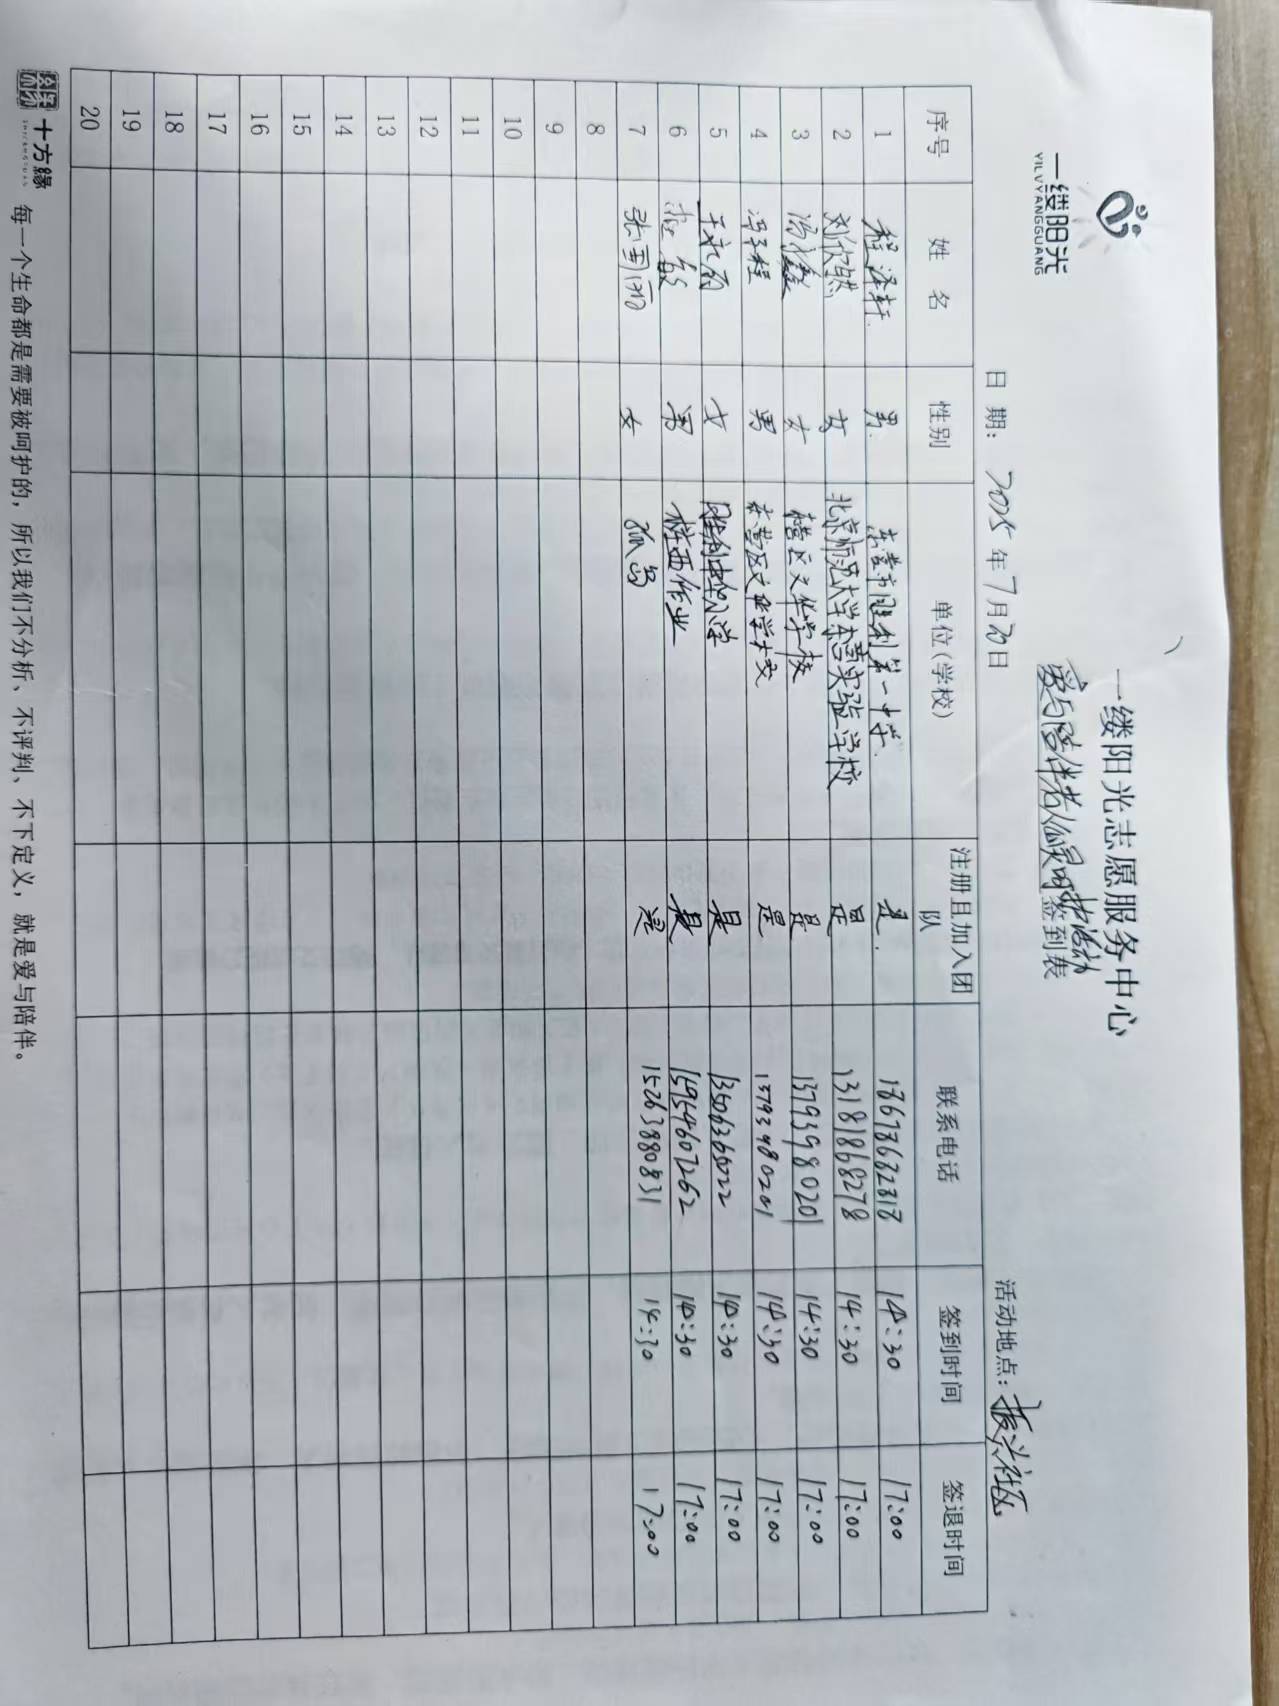 一缕阳光
YILVYANGGUANG
一缕阳光志愿服务中心
爱与陪伴老人心灵呵护活动签到表
日 期: 2025年7月20日 活动地点: 振兴社区
序号 姓 名 性别 单位(学校) 注册且加入团队 联系电话 签到时间 签退时间
1 程泽轩 男 东营市胜利第一中学 是 18678682818 14:30 17:00
2 刘欣然 女 北京师范大学东营实验学校 是 13181868278 14:30 17:00
3 女 东营区文华学校 是 13793980201 14:30 17:00
4 冯子程 男 东营区文华学校 是 13793980201 14:30 17:00
5 女 胜利 小学 是 14:30 17:00
6 男 桩西作业 是 15954607262 14:30 17:00
7 张 丽 女 孤岛 是 15263880831 14:30 17:00
8
9
10
11
12
13
14
15
16
17
18
19
20
十方缘 每一个生命都是需要被呵护的，所以我们不分析、不评判、不下定义，就是爱与陪伴。